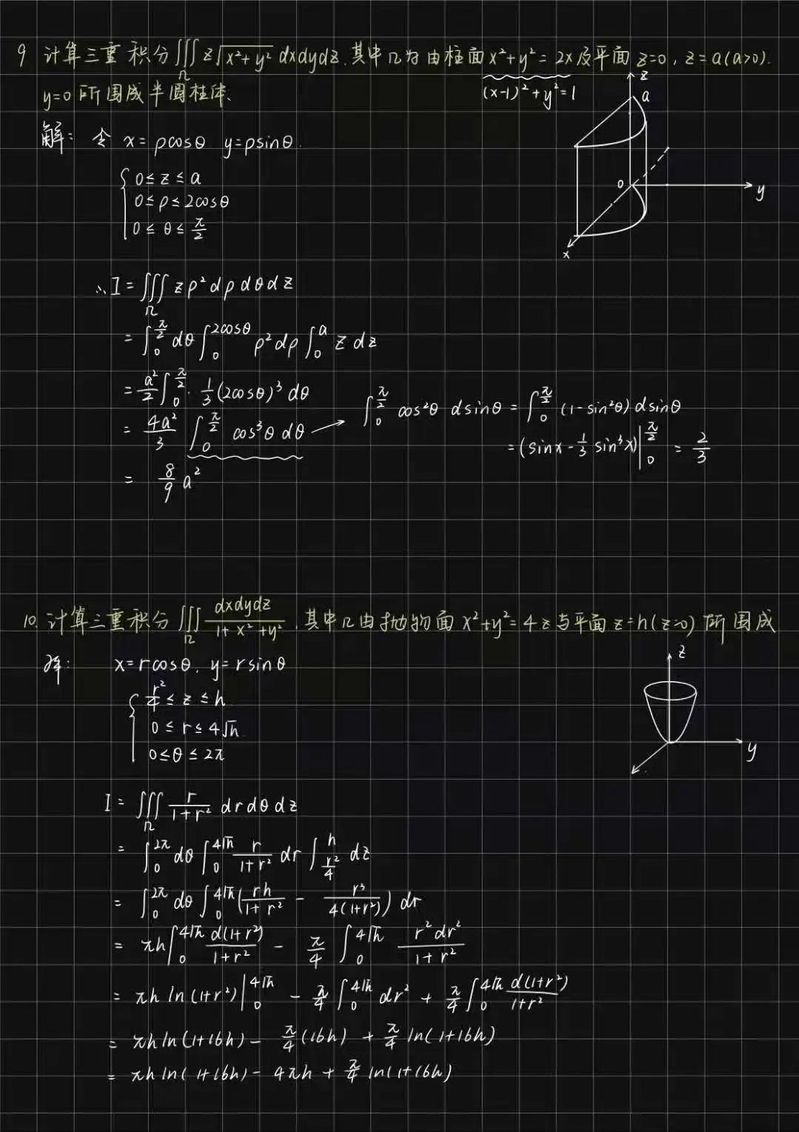 9 计算三重积分∭_Ω z√(x²+y²) dxdydz.其中Ω为由柱面x²+y²=2x及平面z=0, z=a(a>0).
y=0所围成半圆柱体.
(x-1)²+y²=1
解: 令 x=ρcosθ y=ρsinθ.
{ 0≤z≤a
0≤ρ≤2cosθ
0≤θ≤π/2
z
a
0
y
x
∴I=∭_Ω zρ²dρdθdz
=∫₀^(π/2) dθ∫₀^(2cosθ) ρ²dρ∫₀^a z dz
=a²/2∫₀^(π/2)·1/3(2cosθ)³dθ
=4a²/3 ∫₀^(π/2) cos³θdθ → ∫₀^(π/2) cos²θ dsinθ=∫₀^(π/2)(1-sin²θ)dsinθ
=(sinx-1/3 sin³x)|₀^(π/2) = 2/3
= 8/9 a²
10.计算三重积分∭_Ω dxdydz/(1+x²+y²).其中Ω由抛物面x²+y²=4z与平面z=h(z>0)所围成
解: x=rcosθ. y=rsinθ
{ r²/4≤z≤h
0≤r≤4√h
0≤θ≤2π
z
y
I=∭_Ω r/(1+r²) drdθdz
=∫₀^(2π) dθ∫₀^(4√h) r/(1+r²) dr∫_(r²/4)^h dz
=∫₀^(2π) dθ∫₀^(4√h)(rh/(1+r²) - r³/(4(1+r²))) dr
=πh∫₀^(4√h) d(1+r²)/(1+r²) - π/4 ∫₀^(4√h) r²dr²/(1+r²)
=πh ln(1+r²)|₀^(4√h) - π/4∫₀^(4√h) dr² + π/4∫₀^(4√h) d(1+r²)/(1+r²)
=πh ln(1+16h) - π/4(16h) + π/4 ln(1+16h)
=πh ln(1+16h) - 4πh + π/4 ln(1+16h)